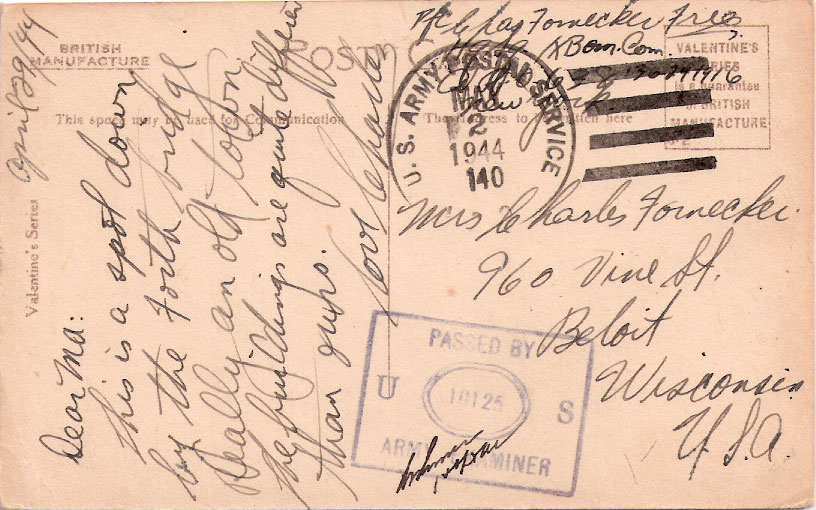 April 29/44
Dear Ma:
This is a spot down
by the Forth bridge
Really an old town.
The buildings are quite different
than ours.
love Charles
Valentine's Series
BRITISH
MANUFACTURE
POSTC
This space may be used for Communication
The Address to be written here
Pfc Chas Fornecker Free
Bom. Com.
638
New York
U. S. ARMY POSTAL SERVICE
MAY
2
1944
140
VALENTINE'S
SERIES
is a guarantee
of BRITISH
MANUFACTURE
Mrs Charles Fornecker.
960 Vine St.
Beloit
Wisconsin
U.S.A.
PASSED BY
U 10125 S
ARMY EXAMINER